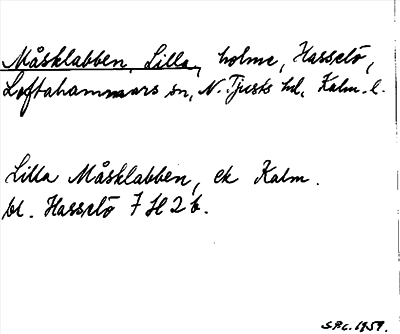 Måsklabben, Lilla, holme, Hasselö,
Loftahammars sn, N. Tjusts hd, Kalm. l.
Lilla Måsklabben, ek Kalm.
bl. Hasselö 7 H 2 b.
S.P.C. 1959.